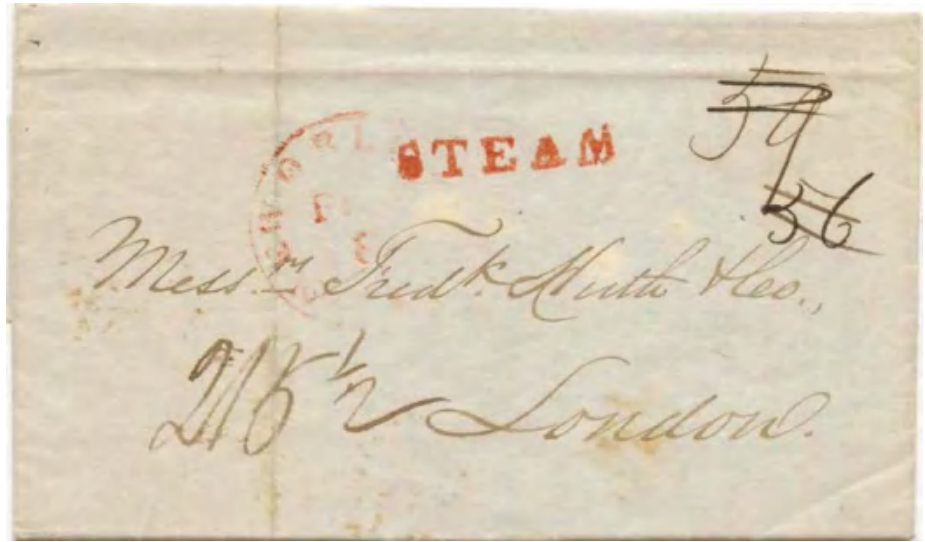 STEAM
59
56
Messrs Fredk. Huth & Co.,
London.